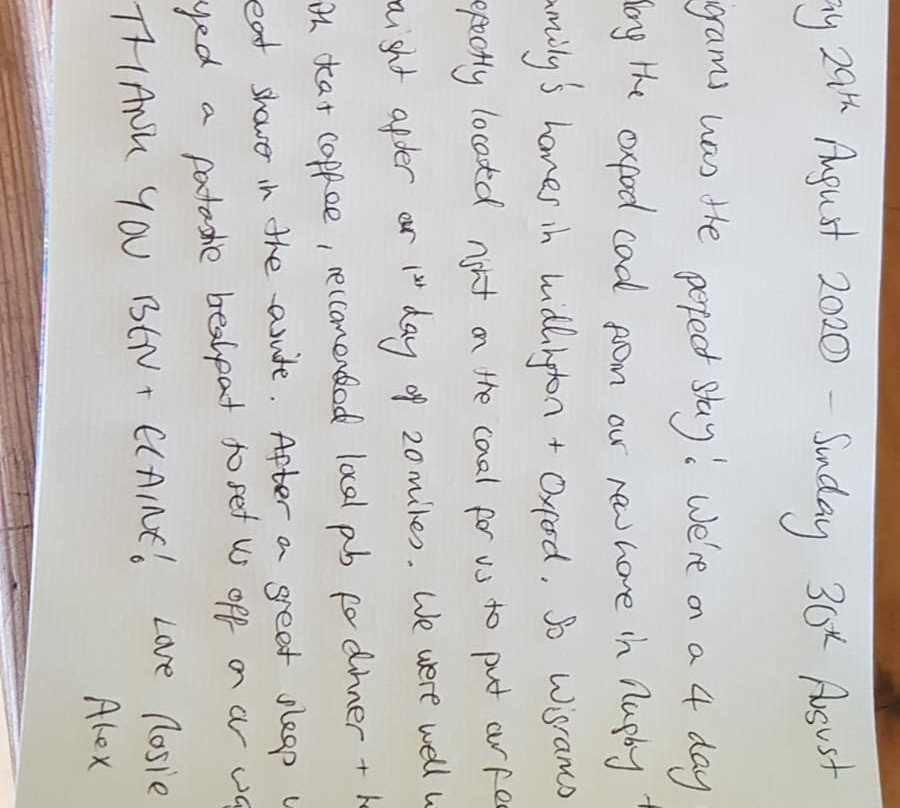 ay 29th August 2020 - Sunday 30th August
igrams was the perfect stay! We're on a 4 day
long the oxford canal from our new home in Rugby t
amily's homes in kidlington + Oxford. So Wigrams
erfectly located right on the canal for us to put our fee
night after our 1st day of 20 miles. We were well w
th tea + coffee, reccomended local pub for dinner + h
eat shower in the ensuite. After a great sleep w
yed a fantastic breakfast to set us off on our wa
THANK YOU BEN + CLAIRE! Love Rosie
Alex